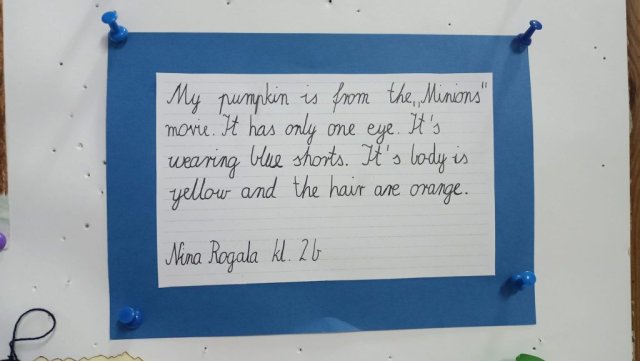 My pumpkin is from the „Minions"
movie. It has only one eye. It's
wearing blue shorts. It's body is
yellow and the hair are orange.
Nina Rogala kl. 2b